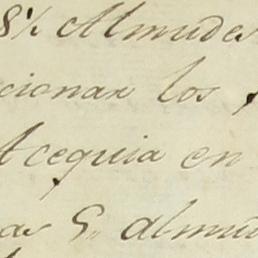 8½ Almudes
cionar los
Acequia en
de 5,, almud